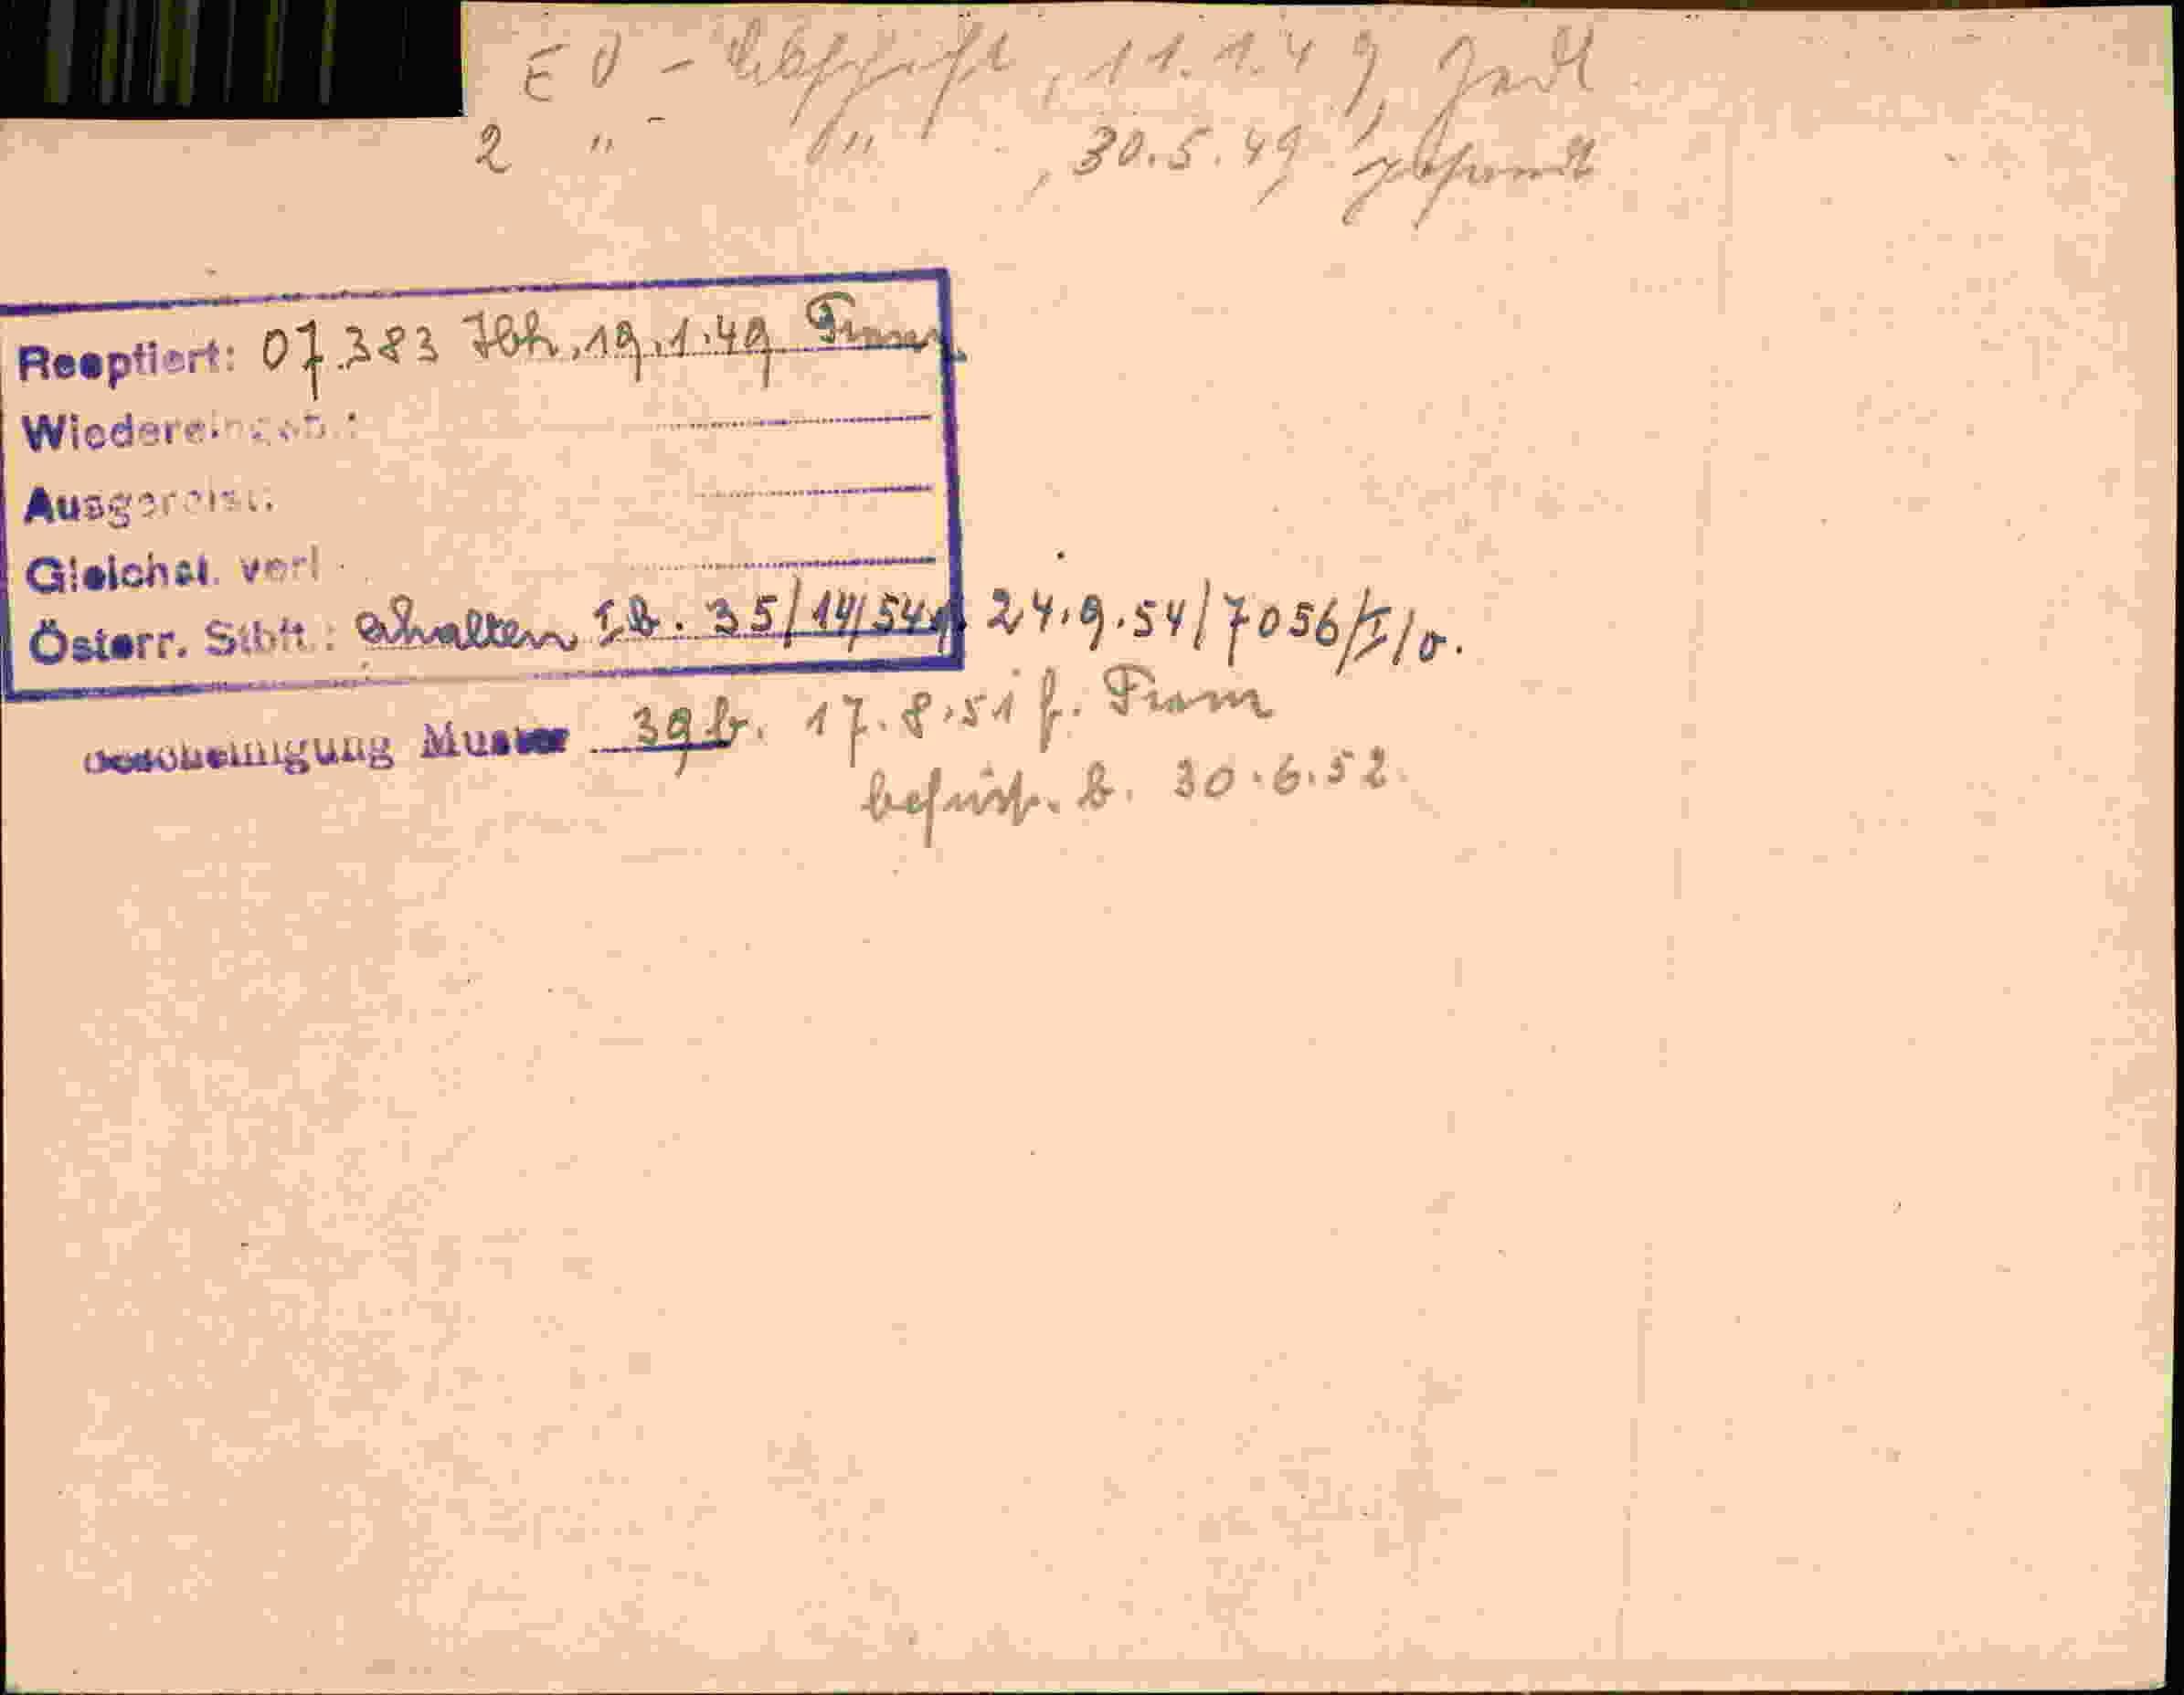 EV - Abschrift, 11.1.49,
2 " - " , 30.5.49
Reoptiert: 07.383 Ibk, 19.1.49
Wiedereingeb.:
Ausgereist:
Gleichst. verl.
Österr. Stbft.: erhalten I.B. 35/14/54 24.9.54/7056/I/o.
Bescheinigung Muster 39 b. 17.8.51 f.
befrist. b. 30.6.52